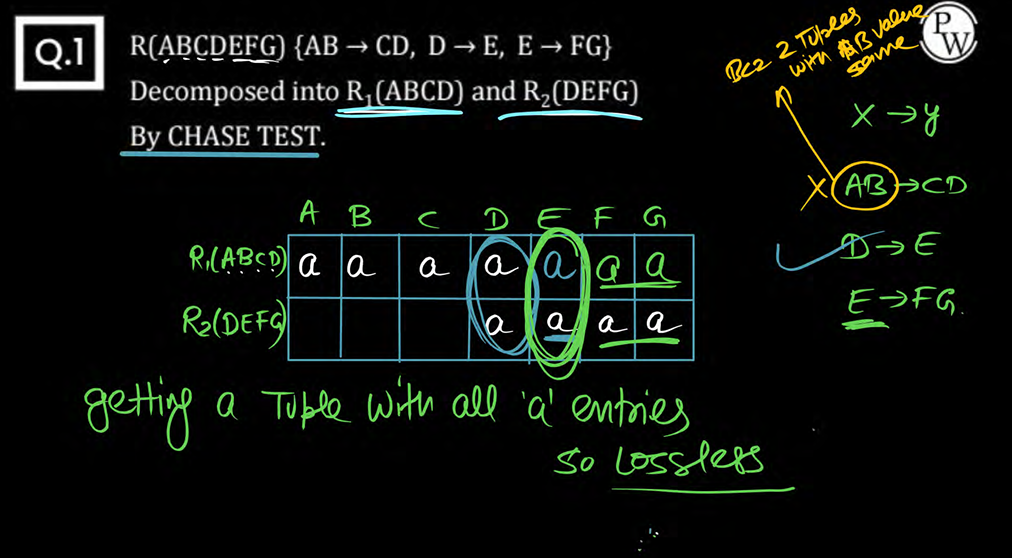 Q.1
R(ABCDEFG) {AB → CD, D → E, E → FG}
Decomposed into R₁(ABCD) and R₂(DEFG)
By CHASE TEST.
PW
Bcz 2 Tuples
with AB value
same
X → y
X AB → CD
D → E
E → FG.
A B C D E F G
R₁(ABCD) a a a a a a a
R₂(DEFG) a a a a
getting a Tuple with all 'a' entries
so Lossless